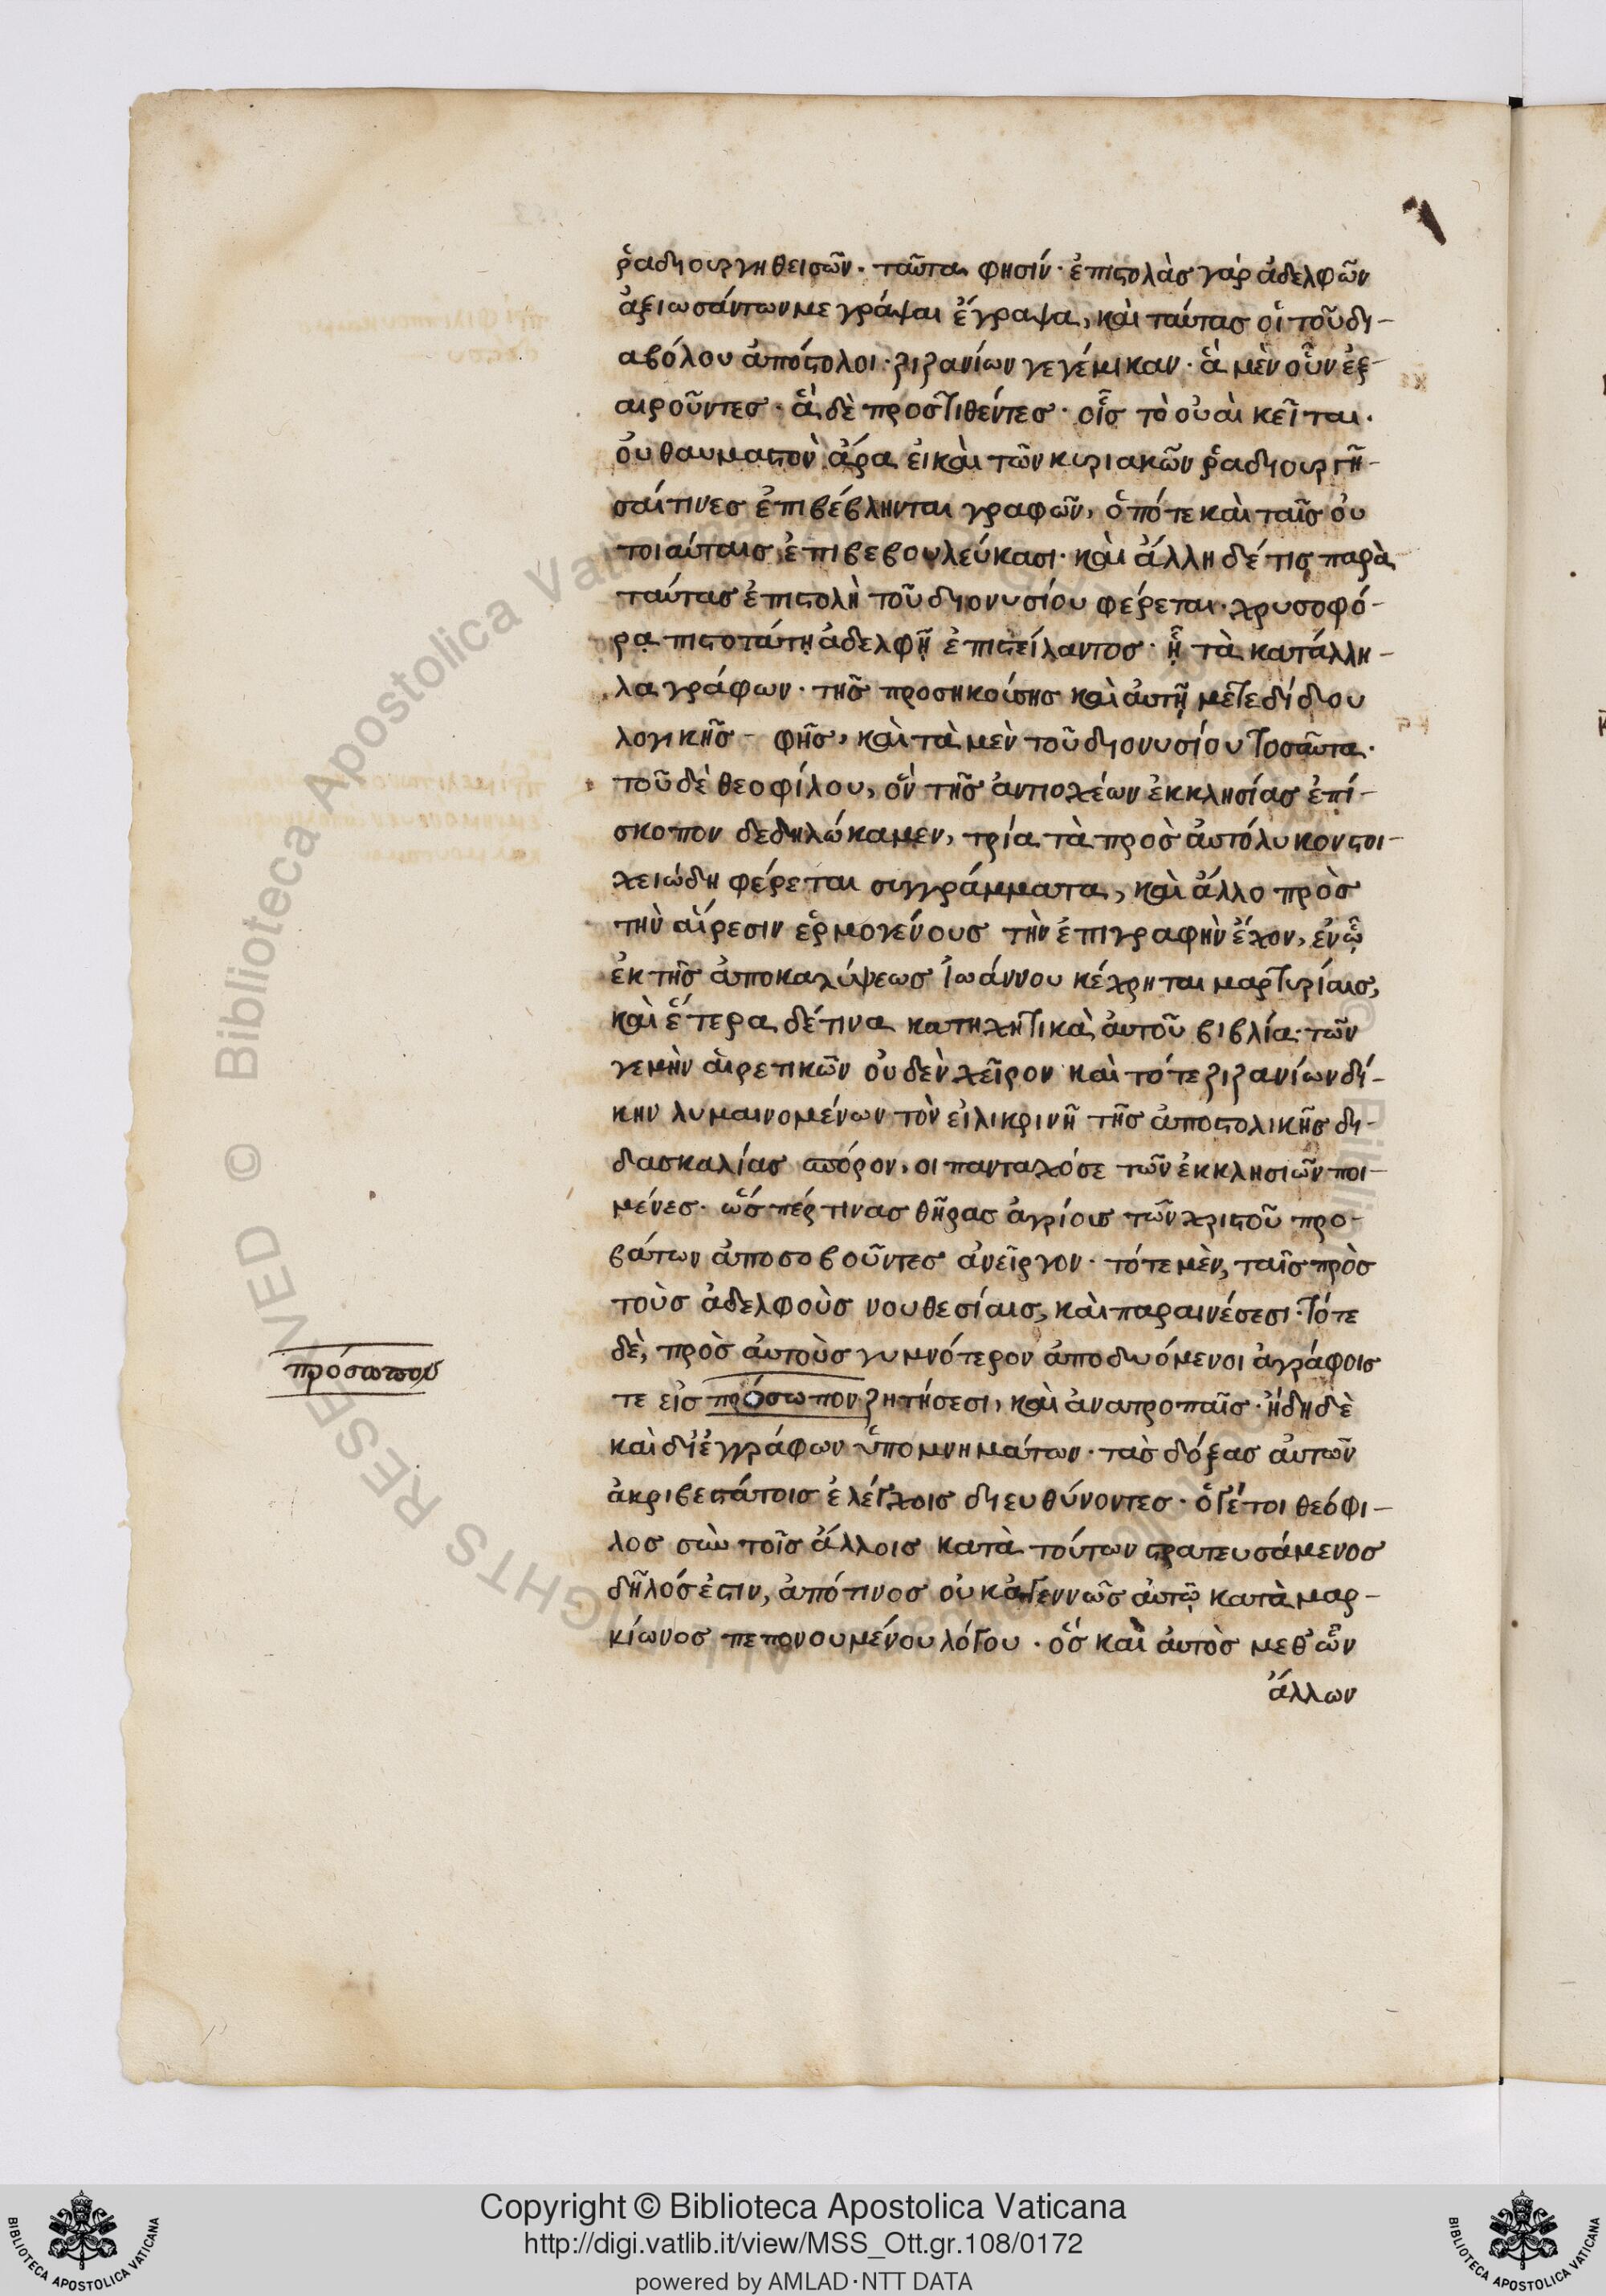 ῥαδιουργηθεισῶν· ταῦτα φησίν· ἐπιστολὰς γὰρ ἀδελφῶν
ἀξιωσάντων με γράψαι ἔγραψα, καὶ ταύτας οἱ τοῦ δι-
αβόλου ἀπόστολοι· ζιζανίων γεγέμικαν· ἃ μὲν οὖν ἐξ-
αιροῦντες· ἃ δὲ προστιθέντες· οἷς τὸ οὐαὶ κεῖται·
οὐ θαυμαστὸν ἄρα εἰ καὶ τῶν κυριακῶν ῥαδιουργῆ-
σαί τινες ἐπιβέβληνται γραφῶν, ὁπότε καὶ ταῖς οὐ
τοιαύταις ἐπιβεβουλεύκασι· καὶ ἄλλη δέ τις παρὰ
ταύτας ἐπιστολὴ τοῦ διονυσίου φέρεται· χρυσοφό-
ρᾳ πιστοτάτῃ ἀδελφῇ ἐπιστείλαντος· ᾗ τὰ κατάλλη-
λα γράφων· τῆς προσηκούσης καὶ αὐτῇ μετεδίδου
λογικῆς - φῆς, καὶ τὰ μὲν τοῦ διονυσίου τοσαῦτα·
τοῦ δὲ θεοφίλου, ὃν τῆς ἀντιοχέων ἐκκλησίας ἐπί-
σκοπον δεδηλώκαμεν, τρία τὰ πρὸς αὐτόλυκον στοι-
χειώδη φέρεται συγγράμματα, καὶ ἄλλο πρὸς
τὴν αἵρεσιν ἑρμογένους τὴν ἐπιγραφὴν ἔχον, ἐν ᾧ
ἐκ τῆς ἀποκαλύψεως ἰωάννου κέχρηται μαρτυρίαις,
καὶ ἕτερα δέ τινα κατηχητικὰ αὐτοῦ βιβλία· τῶν
γε μὴν αἱρετικῶν οὐδὲν χεῖρον καὶ τότε ζιζανίων δί-
κην λυμαινομένων τὸν εἰλικρινῆ τῆς ἀποστολικῆς δι-
δασκαλίας σπόρον, οἱ πανταχόσε τῶν ἐκκλησιῶν ποι-
μένες· ὥς πέρ τινας θῆρας ἀγρίοις τῶν χριστοῦ προ-
βάτων ἀποσοβοῦντες ἀνεῖργον· τότε μὲν, ταῖς πρὸς
τοὺς ἀδελφοὺς νουθεσίαις, καὶ παραινέσεσι· τότε
δὲ, πρὸς αὐτοὺς γυμνότερον ἀποδυόμενοι ἀγράφοις
πρόσωπον
τε εἰς πρόσωπον ζητήσεσι, καὶ ἀνατροπαῖς· ἤδη δὲ
καὶ δι᾽ ἐγγράφων ὑπομνημάτων· τὰς δόξας αὐτῶν
ἀκριβεστάτοις ἐλέγχοις διευθύνοντες· ὅ γέ τοι θεόφι-
λος σὺν τοῖς ἄλλοις κατὰ τούτων στρατευσάμενος
δῆλός ἐστιν, ἀπό τινος οὐκ ἀγεννῶς αὐτῷ κατὰ μαρ-
κίωνος πεπονουμένου λόγου· ὃς καὶ αὐτὸς μεθ᾽ ὧν
ἄλλων
Copyright © Biblioteca Apostolica Vaticana
http://digi.vatlib.it/view/MSS_Ott.gr.108/0172
powered by AMLAD·NTT DATA